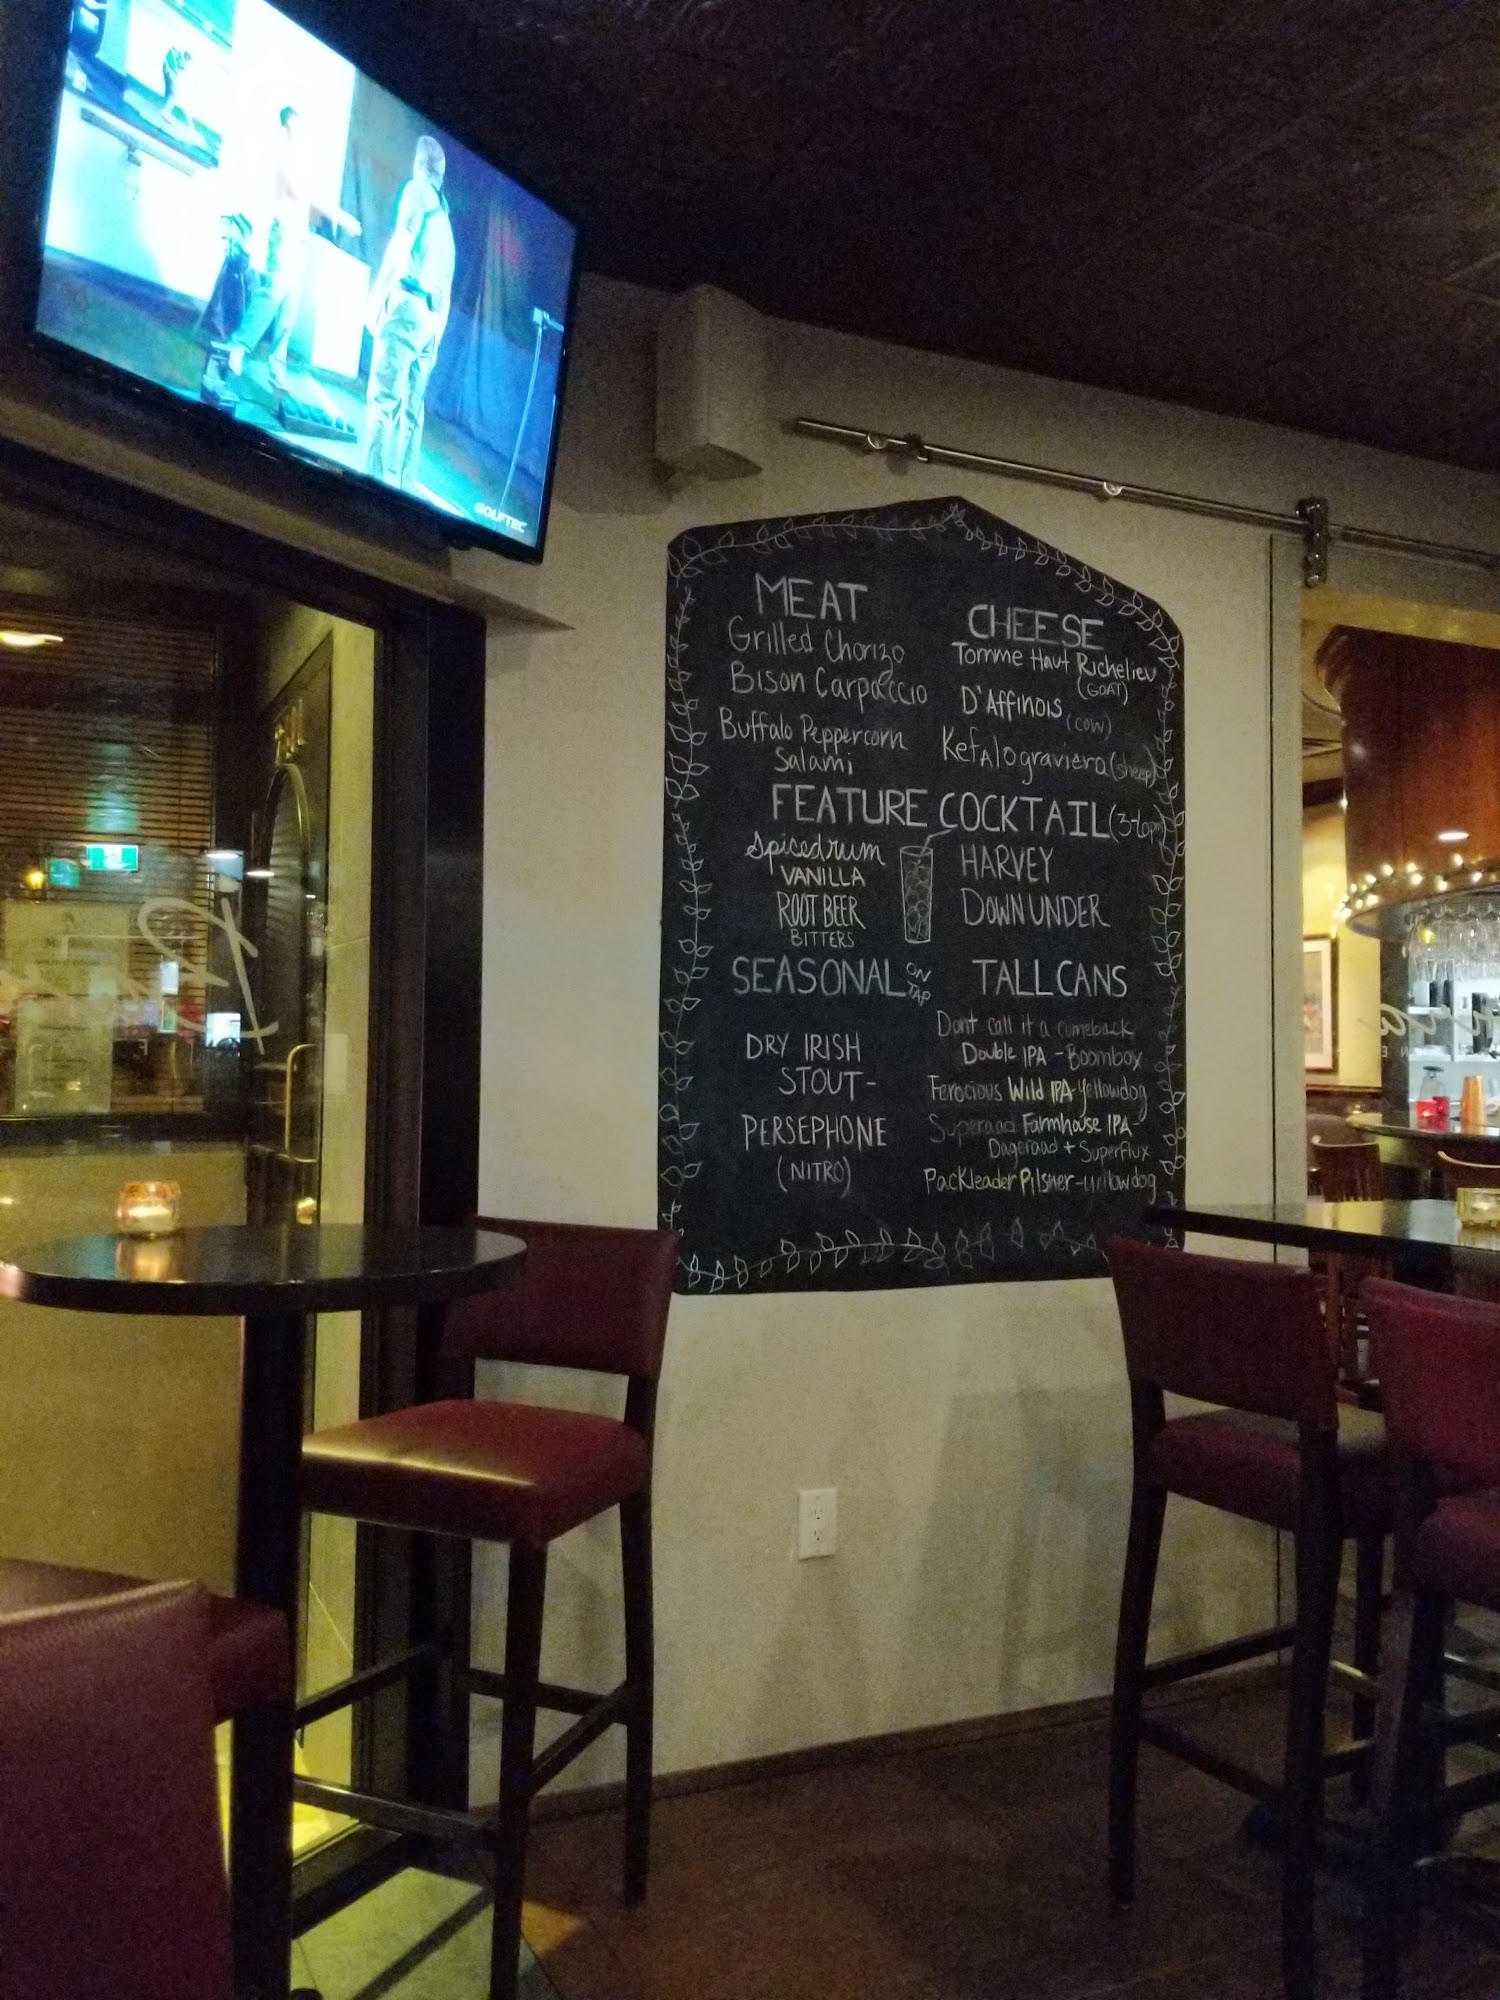 GOLFTEC
MEAT
Grilled Chorizo
Bison Carpaccio
Buffalo Peppercorn
Salami
CHEESE
Tomme Haut Richelieu
(GOAT)
D'Affinois (cow)
Kefalograviera (sheep)
FEATURE COCKTAIL (3-6pm)
Spiced rum
VANILLA
ROOT BEER
BITTERS
HARVEY
DOWN UNDER
SEASONAL ON TAP
DRY IRISH
STOUT-
PERSEPHONE
(NITRO)
TALL CANS
Dont call it a comeback
Double IPA - Boombox
Ferocious Wild IPA-Yellowdog
Superaad Farmhouse IPA-
Dageraad + Superflux
Packleader Pilsner-yellowdog